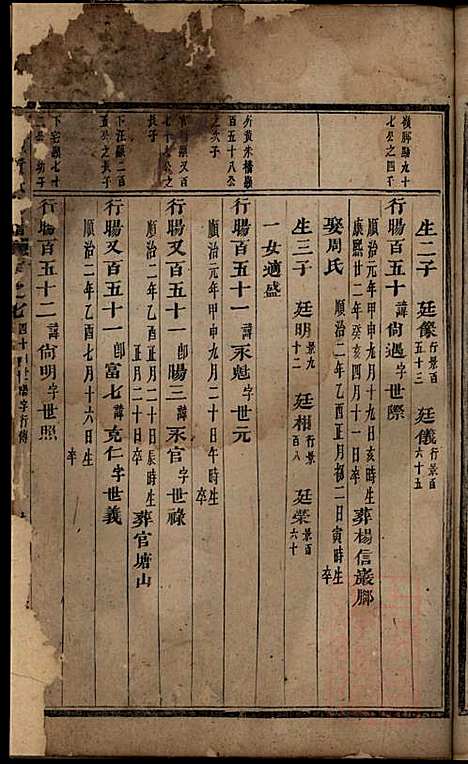 生二子 廷像行景百五十三 廷儀行景百六十五
後腳賜九十七公之四子
行賜百五十 諱尙遇 字世際
順治元年甲申九月十九日亥時生
康熙廿二年癸亥四月十一日卒 葬楊信巖腳
娶周氏 順治二年乙酉正月初二日寅時生 卒
生三子 廷明行景九十二 廷相行景百八 廷榮行景百六十
一女適盛
前黃朱橋賜百五十八公之次子
行賜百五十一 諱永魁 字世元
順治元年甲申九月二十日午時生 卒
官塘賜又百七十公之長子
行賜又百五十一 卽賜三 諱永官 字世祿
順治二年乙酉正月二十日辰時生
正月二十日卒 葬官塘山
下汪賜二百五公之長子
行賜又百五十一 卽富七 諱克仁 字世義
順治二年乙酉七月十六日生 卒
下宅賜七十二公幼子
行賜百五十二 諱尙明 字世照